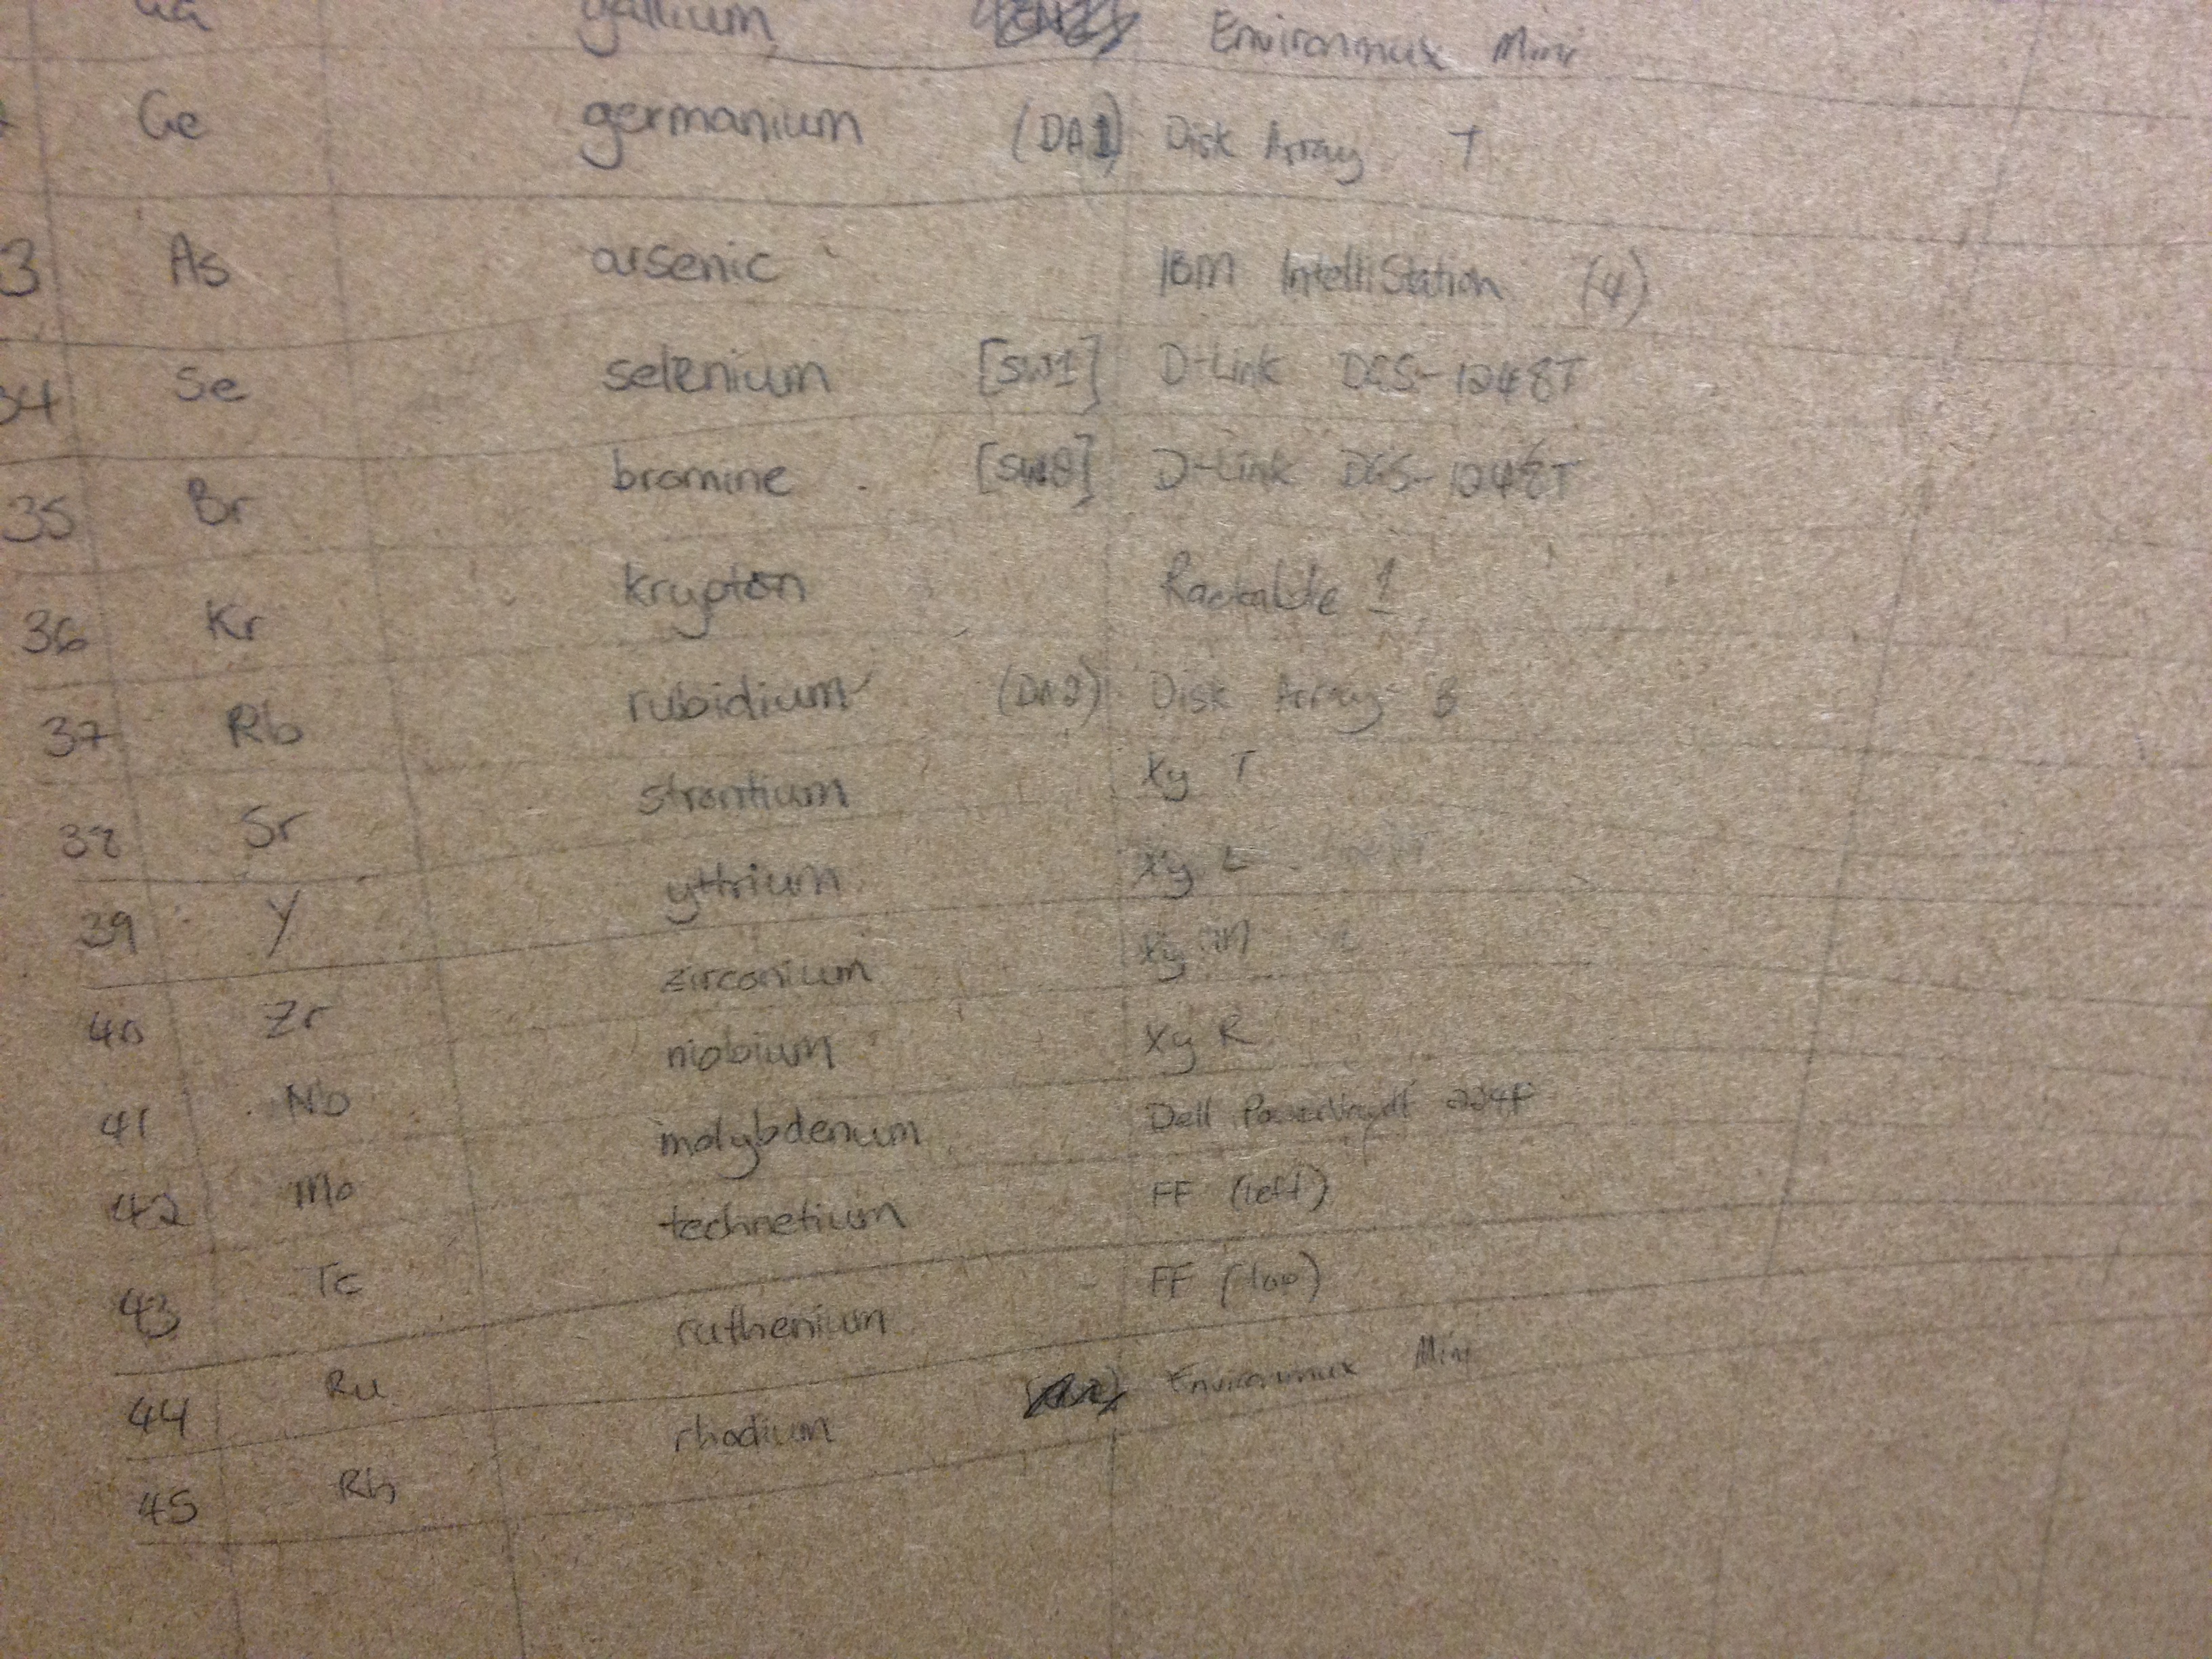 Ga gallium Environmux Mini
Ge germanium (DA1) Disk Array T
3 As arsenic IBM IntelliStation (4)
34 Se selenium [SW1] D-Link DGS-1248T
35 Br bromine D-Link DGS-1248T
36 Kr krypton Rackable 1
37 Rb rubidium (DA2) Disk Array B
38 Sr strontium Xy T
39 Y yttrium Xy L
40 Zr zirconium Xy
41 Nb niobium Xy R
42 Mo molybdenum Dell PowerVault 224F
43 Tc technetium FF (left)
44 Ru ruthenium FF (low)
45 Rh rhodium Environmux Mini